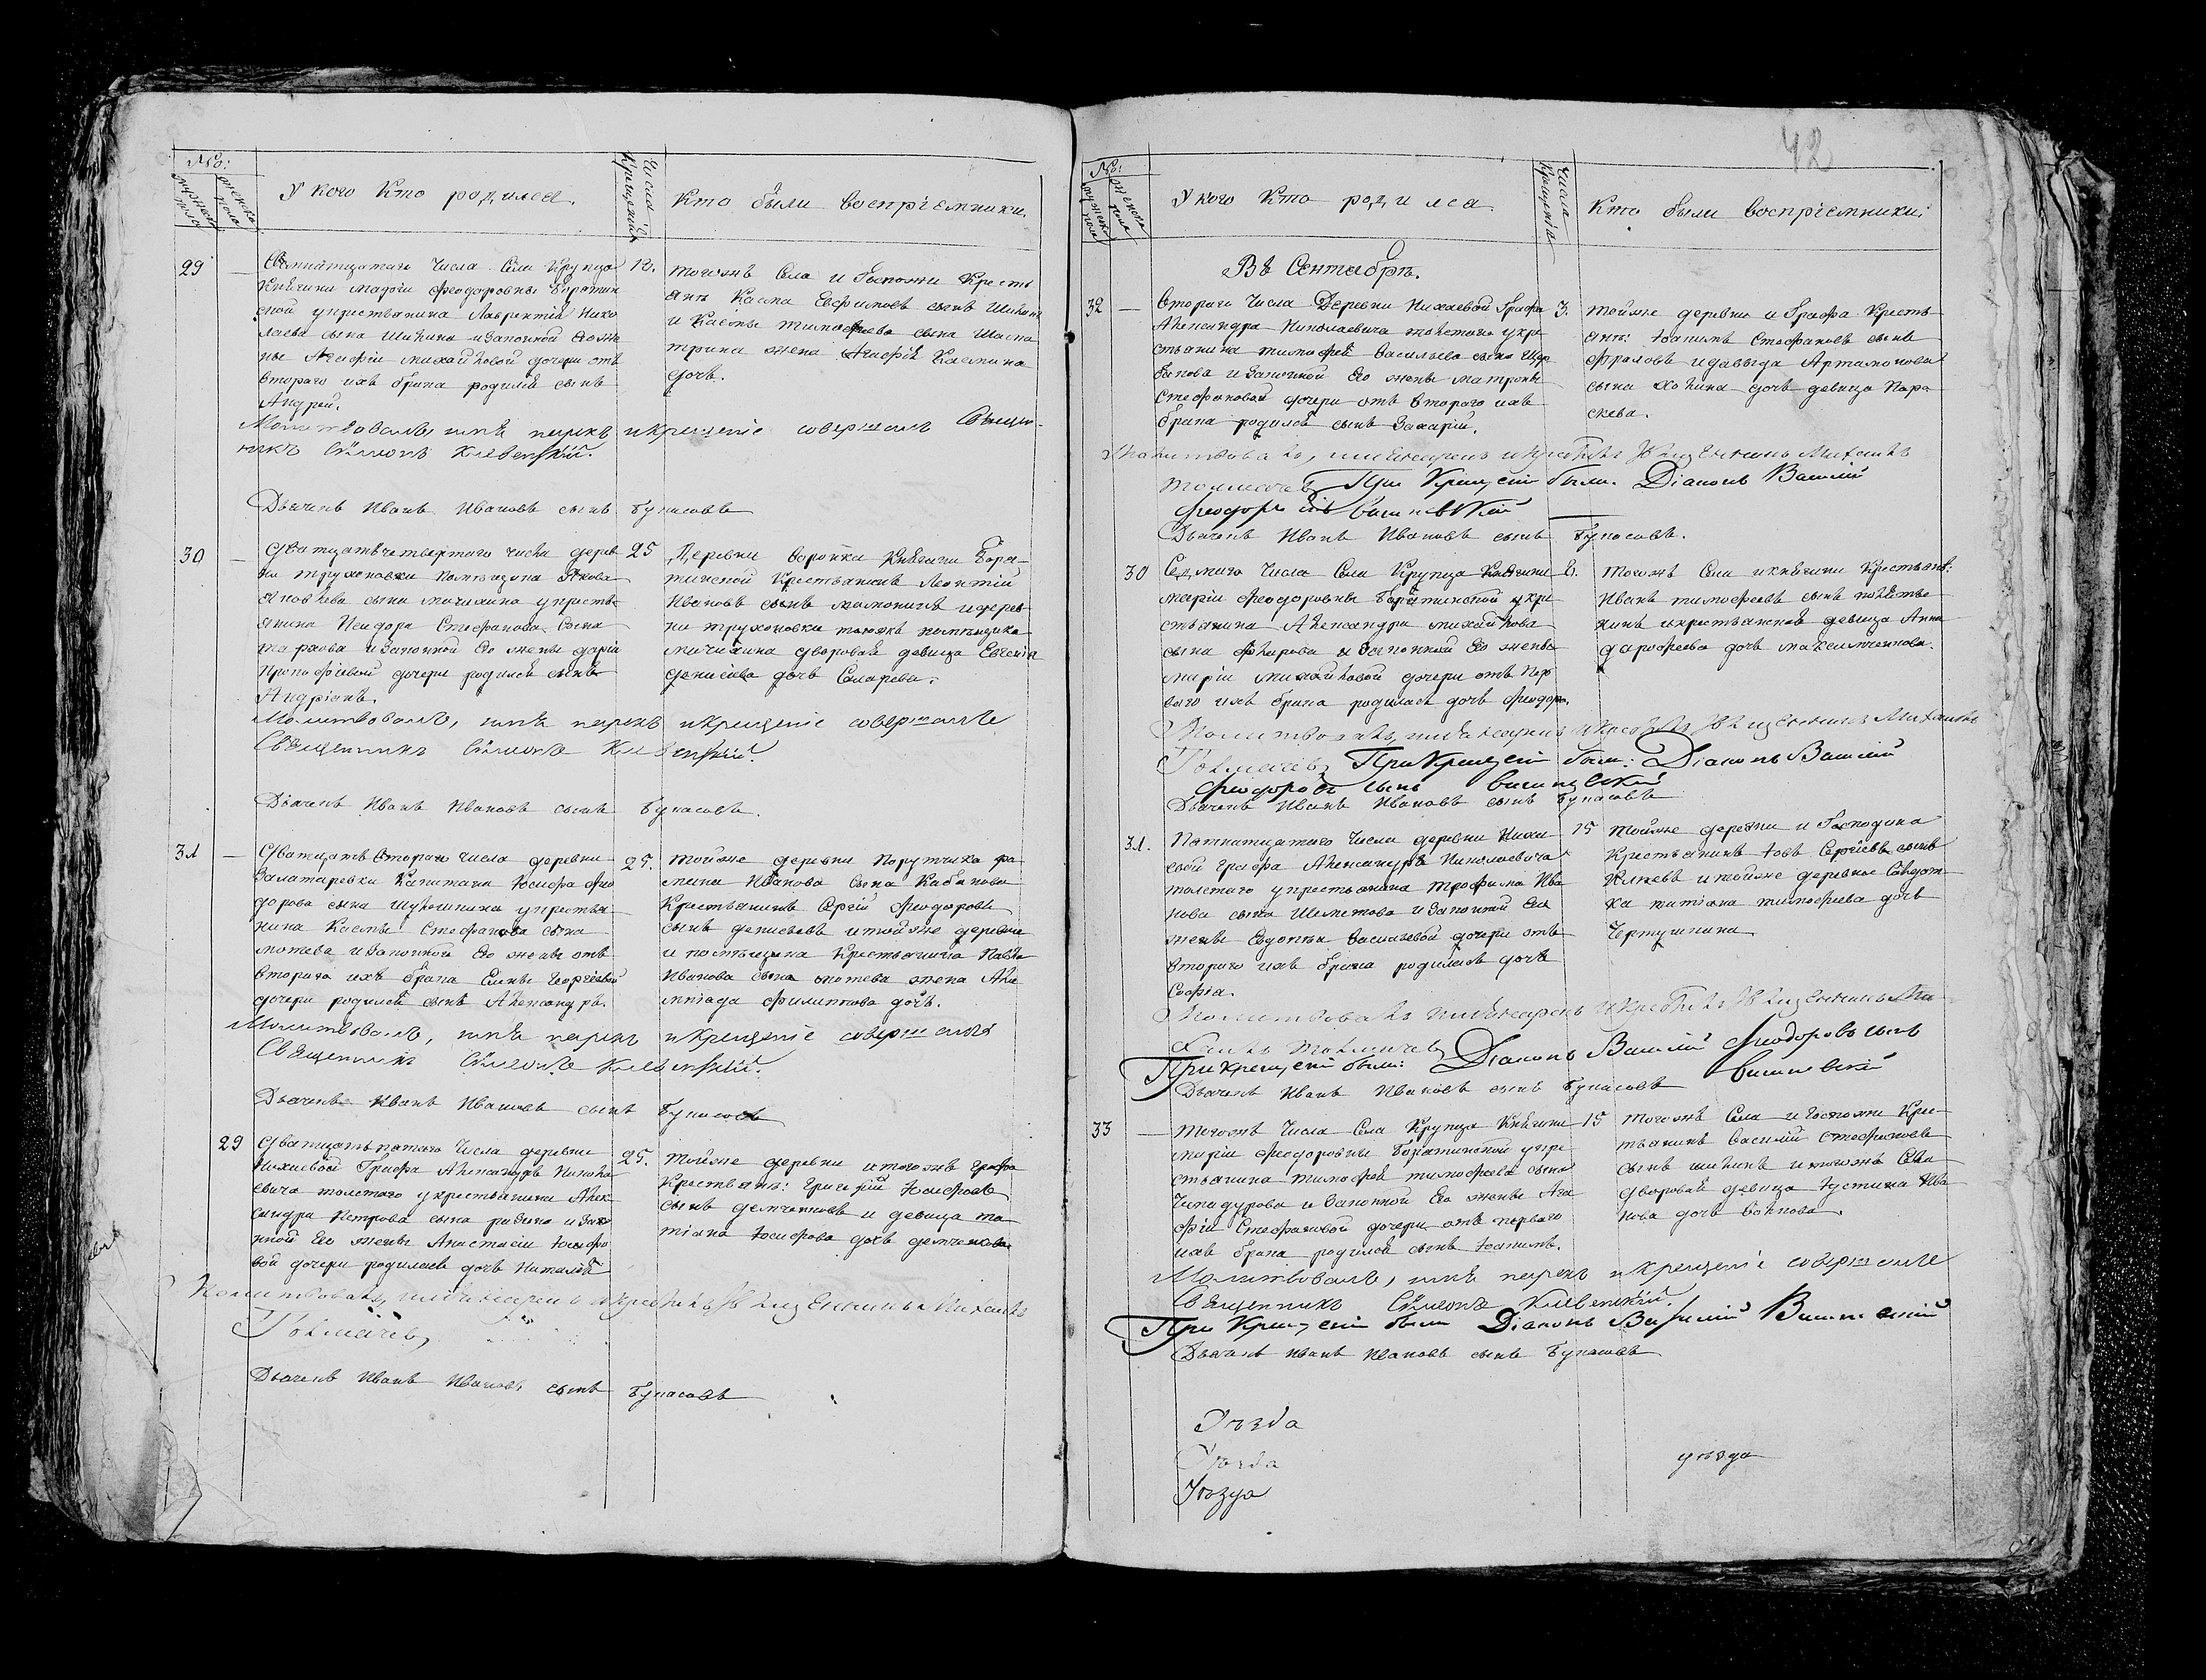 №:
мужеска пола
женска пола
У кого Кто родился.
Числа Крещенія
Кто были воспріемники.
29
Семнатцатаго Числа Села Крупца
Княгини Маріи Феодоровны Борятин
ской укрестьянина Лаврентія Нико
лаева сына Шикина изаконной Его же
ны Агафіи Михайловой дочери отъ
втораго ихъ брака родился сынъ
Андрей.
18.
тогожъ Села и Госпожи Кресть
янъ Касма Евфимовъ сынъ
и Касмы тимофеева сына
жена Агафія Касмина
дочь.
Молитвовалъ, имя нарекъ икрещеніе совершалъ Священ-
никъ Сѵмеонъ Клевенскій.
Дьячекъ Иванъ Ивановъ сынъ Бунасовъ
30
Дватцатьчетвертаго числа дерев
ни труханоски Помещика Якова
Яковлева сына мачихина укресть
янина Исидора Стефанова сына
изаконной Его жены даріи
Прокофіевой дочери родился сынъ
Андріанъ.
25
Деревни Воронка Княгини Боря-
тинской Крестьянинъ Леонтій
Ивановъ сынъ идерев-
ни трухоновки тогожъ помещика
мачихина дворовая девица Евгенія
денисіева дочь
Молитвовалъ, имя нарекъ икрещеніе совершалъ
Священникъ Сѵмеонъ Клевенскій.
Дьячекъ Иванъ Ивановъ сынъ Бунасовъ.
31
Дватцать втораго числа деревни
Залатаревки Капитана Іосифа Фио
дорова сына укрестья
нина Касмы Стефанова сына
изаконной Его жены отъ
втораго ихъ брака Елены Георгіевой
дочери родился сынъ Александръ.
25.
тойже деревни Порутчика
Иванова сына Кабанова
Крестьянинъ Сергій Феодоровъ
сынъ денисьевъ итойже деревни
и помещика Крестьянина Павла
Иванова сына жена
филипова дочь.
Молитвовалъ, имя нарекъ икрещеніе совершалъ
Священникъ Сѵмеонъ Клевенскій.
Дьячекъ Иванъ Ивановъ сынъ Бунасовъ
29
Дватцатьпятаго Числа деревни
Нихаевой Графа Александръ Никола
евича толстаго укрестьянина Алек
сандра Петрова сына изако
нной Его жены Анастасіи Іосифо
вой дочери родилась дочь Наталія
25.
тойже деревни итогожъ графа
Крестьянъ: Григорій Іосифовъ
сынъ демченковъ и девица та
тіана Іосифова дочь демченкова
Молитвовалъ, имянарекъ икрестилъ Священникъ Михаилъ
Толмачевъ
Дьячекъ Иванъ Ивановъ сынъ Бунасовъ
42
№:
мужеска пола
женска пола
У кого Кто родился.
Числа Крещенія
Кто были воспріемники:
Въ Сентябрѣ.
32
Втораго Числа Деревни Нихаевой Графа
Александра Николаевича толстаго укре
стьянина тимофея Васильева сына
изаконной Его жены матроны
Стефановой дочери отъ втораго ихъ
брака родился сынъ Захарій.
3.
тойже деревни и Графа Кресть-
янъ: Іоакимъ Стефановъ сынъ
Фраловъ идавыда Артамонова
сына дочь девица Пара-
скева.
Молитвовалъ, имянарекъ икрестилъ Священникъ Михаилъ
Толмачевъ При Крещеніи были. Діаконъ Василій
Феодоровъ сынъ Вишневскій
Дьячекъ Иванъ Ивановъ сынъ Бунасовъ.
30
Седмаго Числа Села Крупца Княгини
маріи Феодоровны Борятинской укре
стьянина Александра михайлова
сына изаконной Его жены
маріи михайловой дочери отъ пер
ваго ихъ брака родилась дочь Феодора.
8.
тогожъ Села икнягини Крестьянъ:
Иванъ тимофеевъ сынъ
икрестьянская девица Анна
дарофеева дочь максименкова.
Молитвовалъ, имянарекъ икрестилъ Священникъ Михаилъ
Толмачевъ При Крещеніи были: Діаконъ Василій
Феодоровъ сынъ Вишневскій
Дьячекъ Иванъ Ивановъ сынъ Бунасовъ
31.
Пятнатцатаго Числа деревни Нихи-
евой графа Александръ Николаевича
толстаго укрестьянина трофима Ива
нова сына Шеметова изаконной Его
жены Евдокіи Васильевой дочери отъ
втораго ихъ брака родилась дочь
Софія.
15
тойже деревни и Господина
Крестьянинъ Іовъ Сергіевъ сынъ
итойже деревни Солдат-
ка татіана тимофеева дочь
Молитвовалъ имянарекъ икрестилъ Священникъ Ми-
хаилъ Толмачевъ
При крещеніи были: Діаконъ Василій Феодоровъ сынъ
Вишневскій
Дьячекъ Иванъ Ивановъ сынъ Бунасовъ
33
тогожъ Числа Села Крупца Княгини
маріи Феодоровны Борятинской укре
стьянина тимофея тимофеева сына
изаконной Его жены Ага
фіи Стефановой дочери отъ перваго
ихъ брака родился сынъ Іоакимъ.
15
тогожъ Села и Госпожи Крес-
тьянинъ Василій Стефановъ
сынъ шикинъ итогожъ Села
дворовая девица Іустина Ива
нова дочь
Молитвовалъ, имя нарекъ икрещеніе совершалъ
Священникъ Сѵмеонъ Клевенскій.
При Крещеніи были Діаконъ Василій Вишневскій
Дьячекъ Иванъ Ивановъ сынъ Бунасовъ
Уѣзда
Уѣзда
уѣзда
Уѣзда